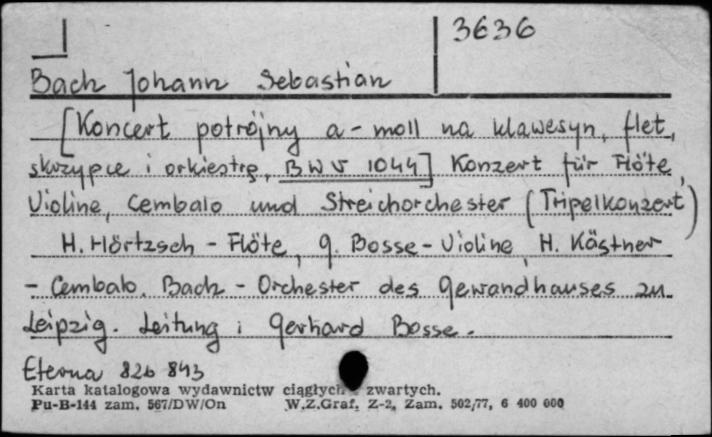 3636
Bach Johann Sebastian
[Koncert potrójny a-moll na klawesyn, flet,
skrzypce i orkiestrę, BWV 1044] Konzert für Flöte,
Violine, Cembalo und Streichorchester (Tripelkonzert)
H. Hörtzsch - Flöte, G. Bosse - Violine, H. Kästner
- Cembalo. Bach - Orchester des Gewandhauses zu
Leipzig. Leitung: Gerhard Bosse.
Eterna 826 843
Karta katalogowa wydawnictw ciągłych zwartych.
Pu-B-144 zam. 567/DW/On W.Z.Graf. Z-2, Zam. 502/77, 6 400 000